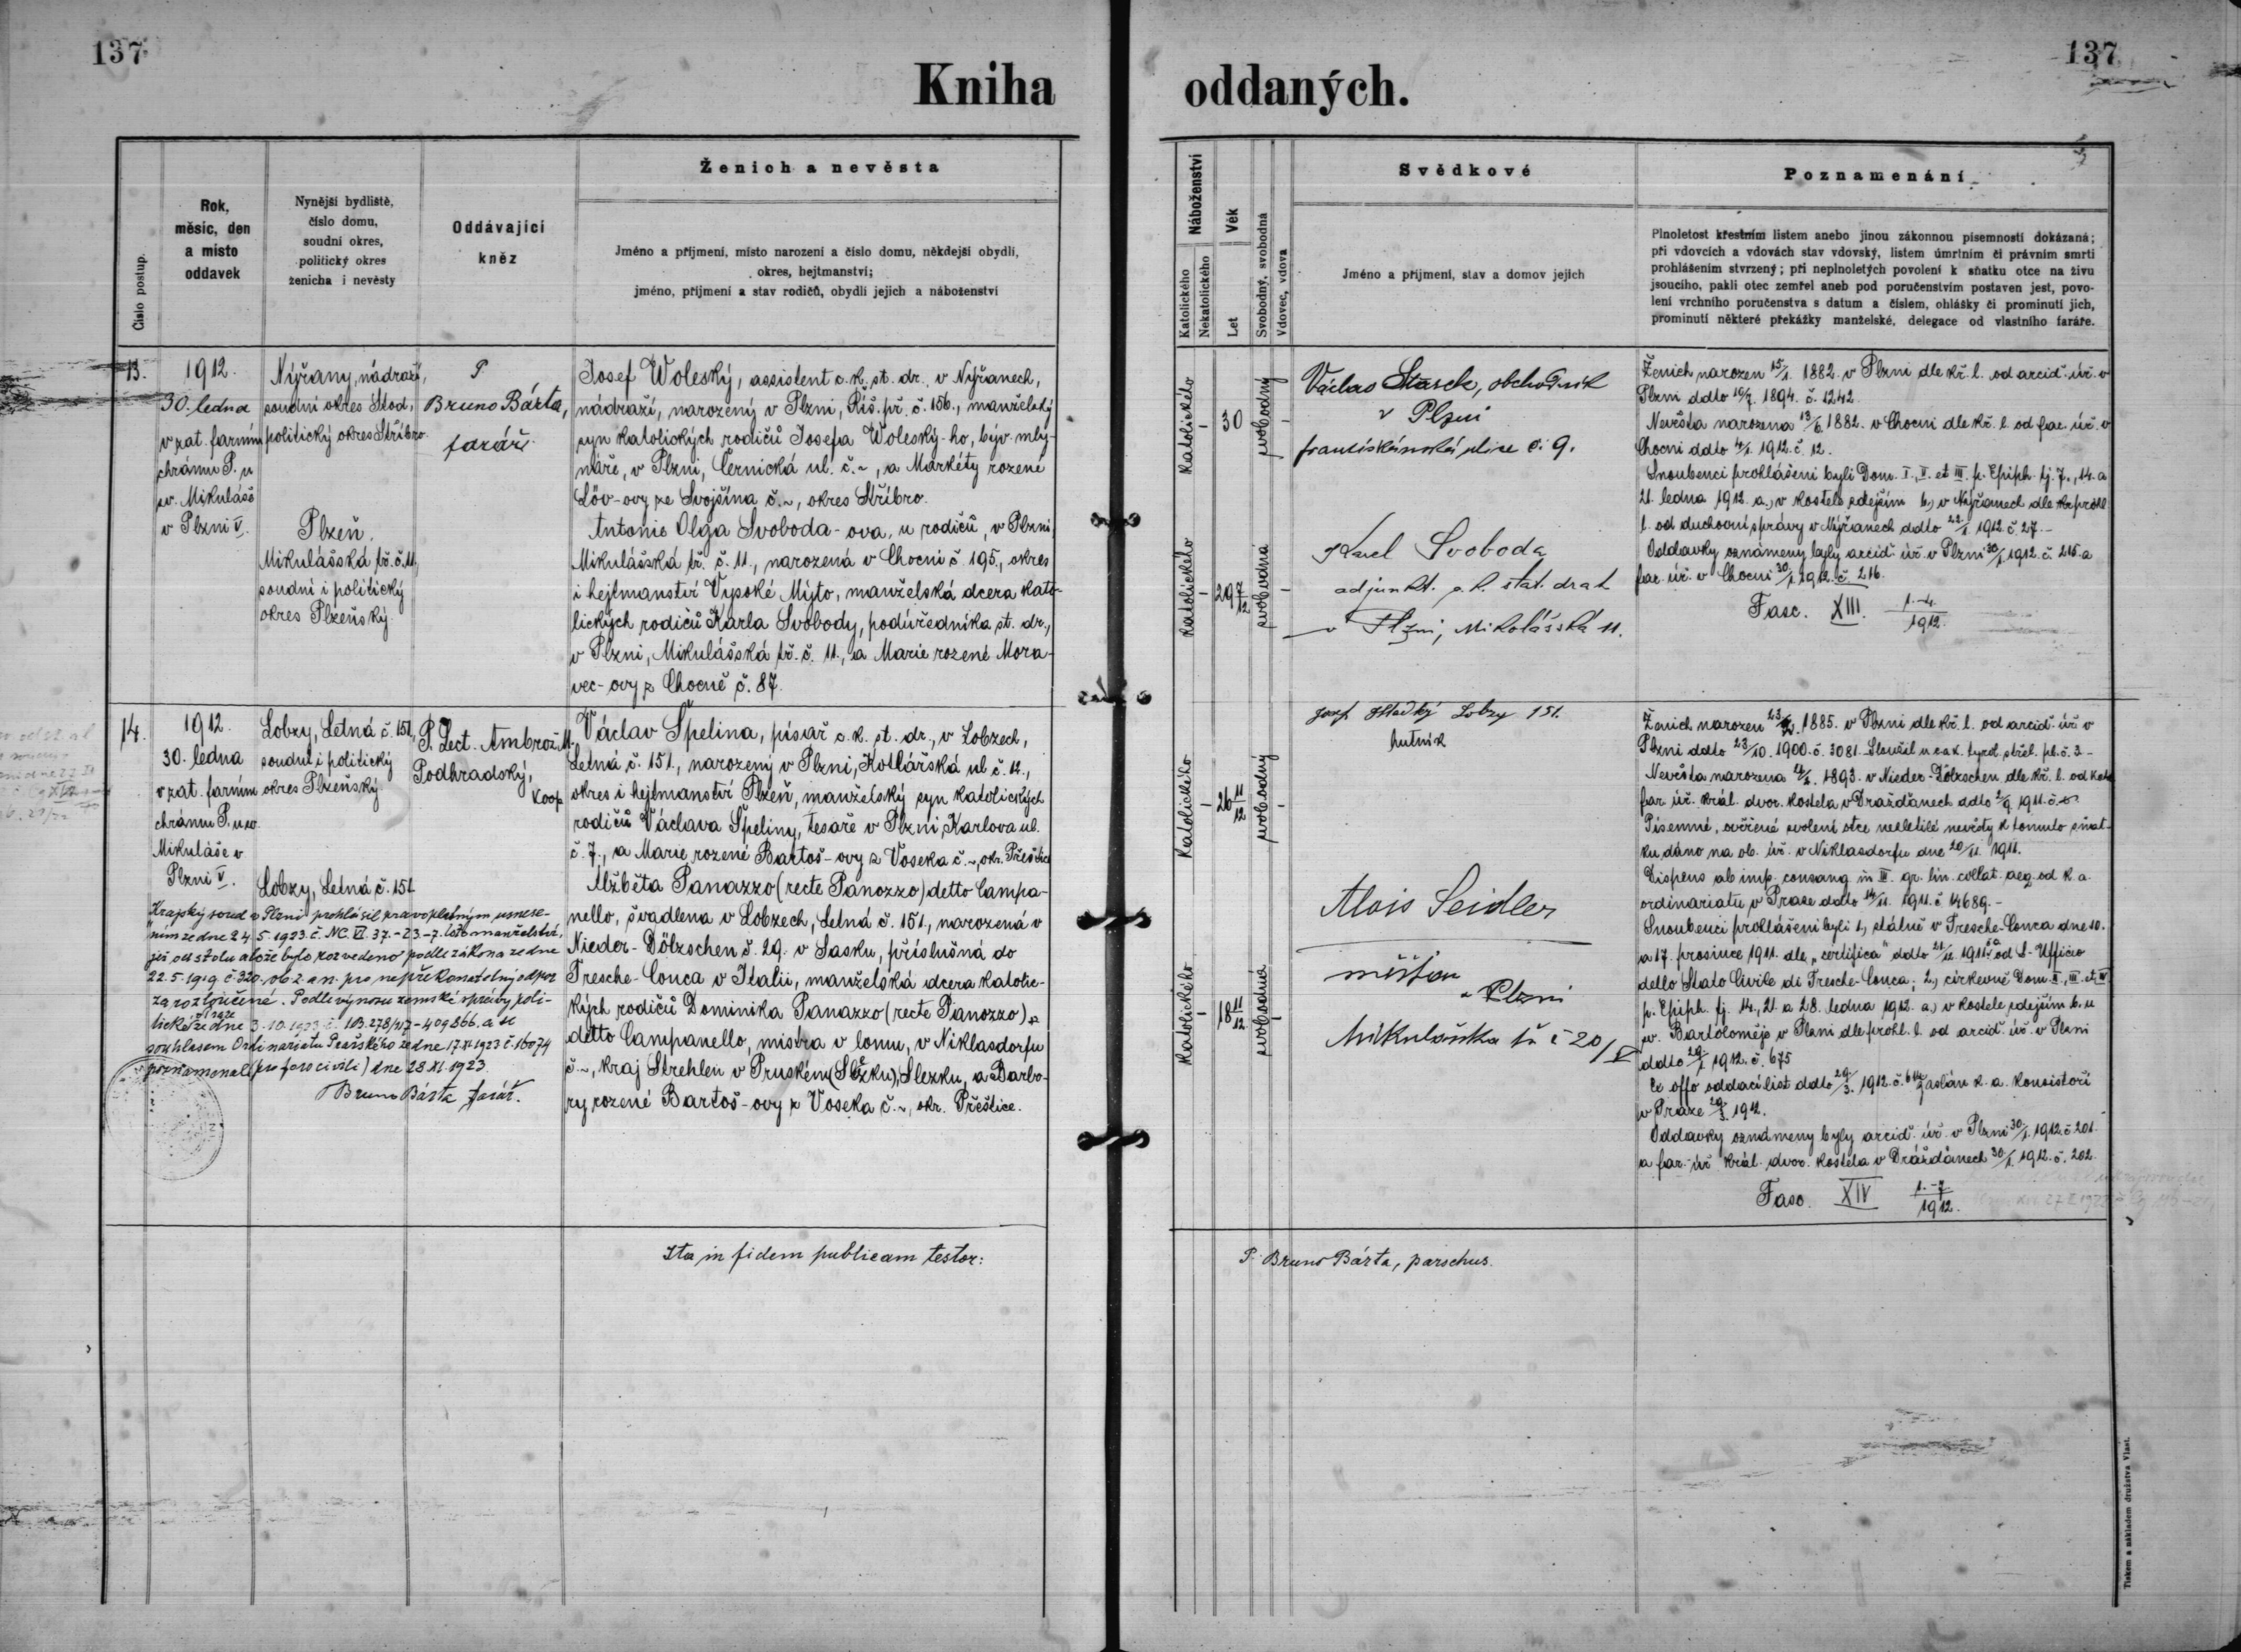 137
137
Kniha oddaných.
Číslo postup.
Rok,
měsíc, den
a místo
oddavek
Nynější bydliště,
číslo domu,
soudní okres,
politický okres
ženicha i nevěsty
Oddávající
kněz
Ženich a nevěsta
Jméno a příjmení, místo narození a číslo domu, někdejší obydlí,
okres, hejtmanství;
jméno, příjmení a stav rodičů, obydlí jejich a náboženství
Náboženství
Katolického
Nekatolického
Věk
Let
Svobodný, svobodná
Vdovec, vdova
Svědkové
Jméno a příjmení, stav a domov jejich
Poznamenání
Plnoletost křestním listem anebo jinou zákonnou písemností dokázaná;
při vdovcích a vdovách stav vdovský, listem úmrtním či právním smrti
prohlášením stvrzený; při neplnoletých povolení k sňatku otce na živu
jsoucího, pakli otec zemřel aneb pod poručenstvím postaven jest, povo-
lení vrchního poručenstva s datum a číslem, ohlášky či prominutí jich,
prominutí některé překážky manželské, delegace od vlastního faráře.
13.
1912.
30. ledna
v zat. farním
chrámu P. u
sv. Mikuláše
v Plzni V.
Nýřany, nádraží,
soudní okres Stod,
politický okres Stříbro.
Plzeň.
Mikulášská tř. č. 11,
soudní i politický
okres Plzeňský.
P
Bruno Bárta,
farář.
Josef Woleský, assistent c. k. st. dr., v Nýřanech,
nádraží, narozený v Plzni, Říš. př. č. 156., manželský
syn katolických rodičů Josefa Woleský-ho, býv. mly-
náře, v Plzni, Černická ul. č. ~, a Markéty rozené
Löv-ovy ze Svojšína č. ~, okres Stříbro.
Antonie Olga Svoboda-ova, u rodičů, v Plzni,
Mikulášská tř. č. 11., narozená v Chocni č. 195., okres
i hejtmanství Vysoké Mýto, manželská dcera kato-
lických rodičů Karla Svobody, podúředníka st. dr.,
v Plzni, Mikulášská tř. č. 11., a Marie rozené Mora-
vec-ovy z Chocně č. 87.
katolického
-
30
svobodný
-
katolického
-
29 7/12
svobodná
-
Václav Stasek, obchodník
v Plzni
františkánská ulice č. 9.
Karel Svoboda
adjunkt. c. k. stat. drah
v Plzni, Mikolášská 11.
Ženich narozen 15/1. 1882. v Plzni dle kř. l. od arcid. úř. v
Plzni ddto 16/7. 1894. č. 1242.
Nevěsta narozena 13/6. 1882. v Chocni dle kř. l. od far. úř. v
Chocni ddto 4/1. 1912. č. 12.
Snoubenci prohlášeni byli Dom. I., II. et III. p. Epiph. tj. 7., 14. a
21. ledna 1912. a, v kostele zdejším b, v Nýřanech dle
l. od duchovní správy v Nýřanech ddto 22/1. 1912. č. 27.-
Oddavky oznámeny byly arcid. úř. v Plzni 30/1. 1912. č. 215. a
far. úř. v Chocni 30/1. 1912. č. 216.
Fasc. XIII. 1.-4./1912.
14.
1912.
30. ledna
v zat. farním
chrámu P. u sv.
Mikuláše v
Plzni V.
Lobzy, Letná č. 151.,
soudní i politický
okres Plzeňský
Lobzy, Letná č. 151
P. Lect. Ambrož M.
Podhradský,
Koop
Václav Špelina, písař c. k. st. dr., v Lobzech,
Letná č. 151., narozený v Plzni, Kotlářská ul. č. 12.,
okres i hejtmanství Plzeň, manželský syn katolických
rodičů Václava Špeliny, tesaře v Plzni, Karlova ul.
č. 7., a Marie rozené Bartoš-ovy z Voseka č. ~, okr. Přeštice
Alžběta Panazzo (recte Panozzo) detto Campa-
nello, švadlena v Lobzech, Letná č. 151., narozená v
Nieder-Dölzschen č. 29. v Sasku, příslušná do
Tresche-Conca v Italii, manželská dcera katolic-
kých rodičů Dominika Panazzo (recte Panozzo)
detto Campanello, mistra v lomu, v Niklasdorfu
č. ~, kraj Strehlen v Pruském (Slezku) Slezku, a Barbo-
ry rozené Bartoš-ovy z Voseka č. ~, okr. Přeštice.
Krajský soud v Plzni prohlásil pravoplatným usnese-
ním ze dne 24. 5. 1923. č. NC. VI. 37.-23.-7. toto manželství,
jež od stolu a lože bylo rozvedeno podle zákona ze dne
22. 5. 1919. č. 320. sb. z. a n. pro nepřekonatelný odpor
za rozloučené. Podle výnosu zemské správy poli-
tické v Praze ze dne 3. 10. 1923 č. 409866. a se
souhlasem Ordinariatu Pražského ze dne 17. XI. 1923. č. 16074
poznamenal (pro foro civili) dne 28. XI. 1923.
Bruno Bárta farář.
katolického
-
26 11/12
svobodný
-
katolického
-
18 11/12
svobodná
-
Josef Hladký Lobzy 151.
hutník
Alois Seidler
měšťan
v Plzni
Mikulášska tř. č 20/V
Ženich narozen 1885. v Plzni dle kř. l. od arcid. úř. v
Plzni ddto 23/10. 1900. č. 3081.
Nevěsta narozena 1893. v Nieder-Dölzschen dle kř. l. od kat.
far. úř. král. dvor. kostela v Drážďanech ddto 2/9. 1911. č.
Písemné, ověřené svolení otce nezletilé nevěsty k tomuto sňat-
ku dáno na ob. úř. v Niklasdorfu dne 20/11. 1911.
Dispens ab imp. consang. in III. gr. lin. collat. aeq. od k. a.
ordinariatu v Praze ddto 14/11. 1911. č. 14689.-
Snoubenci prohlášeni byli 1, státně v Tresche-Conca dne 10.
a 17. prosince 1911. dle „certifica" ddto 21/12. 1911. od L'Ufficio
dello Stato Civile di Tresche-Conca; 2, církevně Dom. II., III. et IV.
p. Epiph. tj. 14., 21. a 28. ledna 1912. a, v kostele zdejším b. u
sv. Bartoloměje v Plzni dle prohl. l. od arcid. úř. v Plzni
ddto 29/1. 1912. č. 675
Ex offo oddací list ddto 29/3. 1912. č. zaslán k. a. konsistoři
v Praze 29/3. 1912.
Oddavky oznámeny byly arcid. úř. v Plzni 30/1. 1912. č. 201.
a far. úř. král. dvor. kostela v Drážďanech 30/1. 1912. č. 202.
Fasc. XIV 1.-7/1912.
Ita in fidem publicam testor:
P. Bruno Bárta, parochus.
Tiskem a nákladem družstva Vlast.